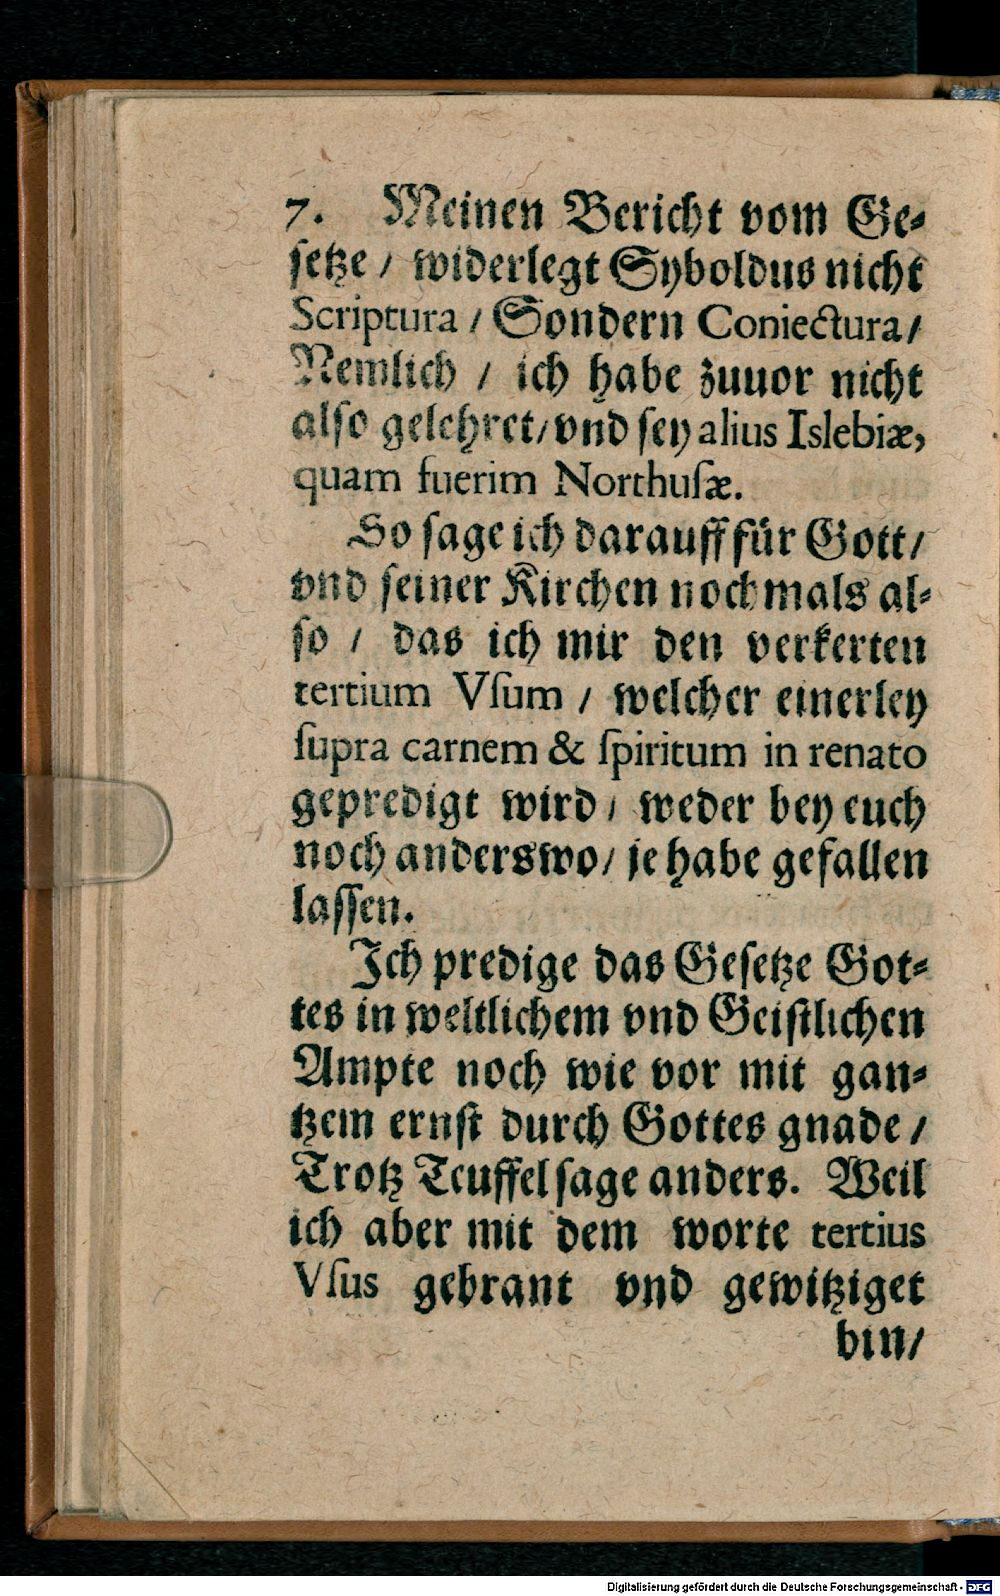 7. Meinen Bericht vom Ge⸗
ſetze / widerlegt Syboldus nicht
Scriptura / Sondern Coniectura /
Nemlich / ich habe zuuor nicht
alſo gelehret / vnd ſey alius Islebiæ,
quam fuerim Northuſæ.
So ſage ich darauff für Gott /
vnd ſeiner Kirchen nochmals al⸗
ſo / das ich mir den verkerten
tertium Vſum / welcher einerley
ſupra carnem & ſpiritum in renato
gepredigt wird / weder bey euch
noch anderswo / je habe gefallen
laſſen.
Ich predige das Geſetze Got⸗
tes in weltlichem vnd Geiſtlichen
Ampte noch wie vor mit gan⸗
tzem ernſt durch Gottes gnade /
Trotz Teuffel ſage anders. Weil
ich aber mit dem worte tertius
Vſus gebrant vnd gewitziget
bin /
Digitalisierung gefördert durch die Deutsche Forschungsgemeinschaft - DFG